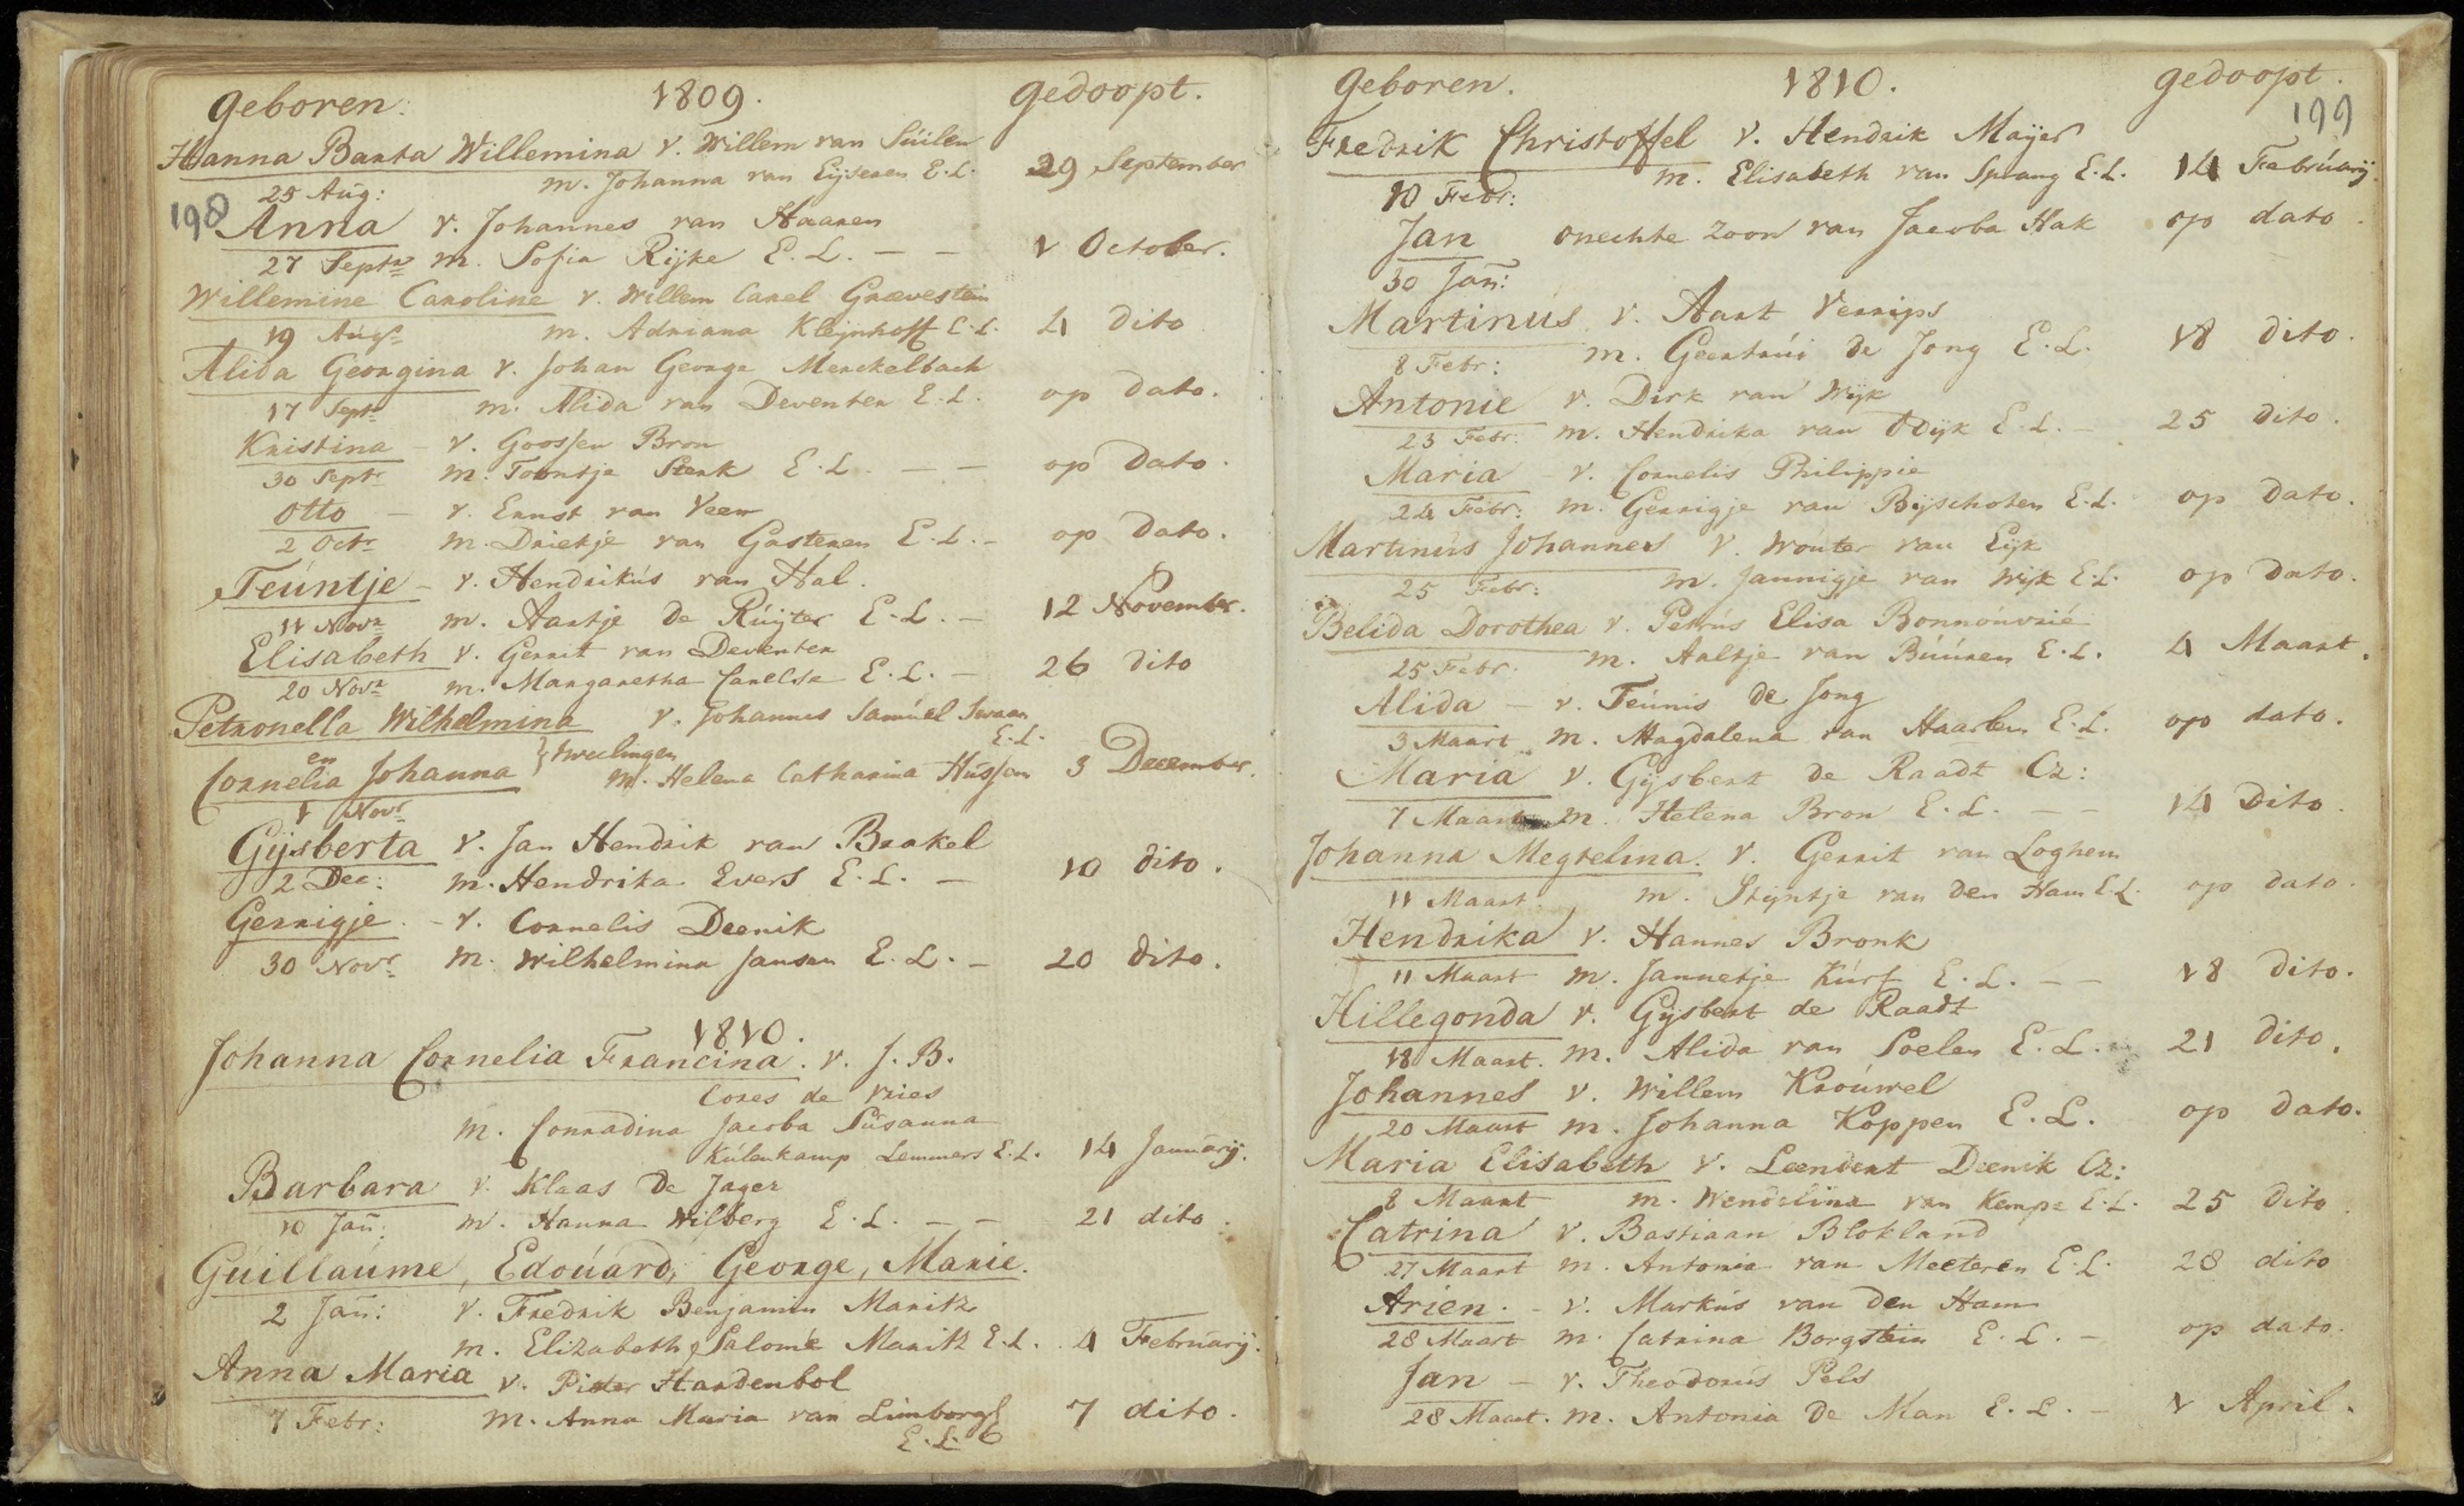 geboren: 1809. gedoopt.
Hanna Barta Willemina v. Willem van Súilen
25 Aug: m. Johanna van Eijseren E.L. 29 September
198
Anna v. Johannes van Haaren
27 Septr m. Sofia Rijke E.L. — — 1 October.
Willemine Caroline v. Willem Carel Grævestein
19 Augs m. Adriana Kleijnhoff E.L. 4 dito
Alida Georgina v. Johan George Merckelbach
17 Septr m. Alida van Deventer E.L. op dato.
Kristina — v. Goossen Bron
30 Septr m. Toontje Sterk E.L. — — op dato.
Otto — v. Ernst van Veen
2 Octr m. Drietje van Gasteren E.L. — op dato.
Teúntje — v. Hendrikús van Hal.
11 Novr m. Aartje de Rúijter E.L. — 12 November.
Elisabeth v. Gerrit van Deventer
20 Novr m. Margaretha Carelse E.L. — 26 dito
Petronella Wilhelmina v. Johannes Samúel Swaan
en } tweelingen E.L.
Cornelia Johanna m. Helena Catharina Hússon 3 December.
1 Novr
Gijsberta v. Jan Hendrik van Brakel
2 Dec: m. Hendrika Evers E.L. — 10 dito.
Gerrigje. — v. Cornelis Deenik
30 Novr m. Wilhelmina Jansen E.L. — 20 dito.
1810.
Johanna Cornelia Francina. v. J. B.
Cores de Vries
m. Conradina Jacoba Súsanna
Kúlenkamp Lemmers E.L. 14 Januarij.
Barbara v. Klaas de Jager
10 Jan: m. Hanna Wilberg E.L. — — 21 dito.
Gúillaúme, Edoúard, George, Marie.
2 Jan: v. Fredrik Benjamin Maritz
m. Elizabeth Salomé Maritz E.L. 4 Februarij.
Anna Maria v. Pieter Hardenbol
7 Febr: m. Anna Maria van Limborgh 7 dito.
E.L.
geboren. 1810. gedoopt.
199
Fredrik Christoffel v. Hendrik Maijer
10 Febr: m. Elisabeth van Sprang E.L. 14 Februarij.
Jan onechte zoon van Jacoba Hak op dato.
30 Jan:
Martinús v. Aart Verrips
8 Febr: m. Geertrúi de Jong E.L. 18 dito.
Antonie v. Dirk van Wijk
23 Febr: m. Hendrika van Dijk E.L. 25 dito.
Maria — v. Cornelis Philippie
24 Febr: m. Gerrigje van Bijschoten E.L. op dato.
Martinús Johannes v. Wouter van Eijk
25 Febr: m. Jannigje van Wijk E.L. op dato.
Belida Dorothea v. Petrús Elisa Bonnoúvrié
25 Febr. m. Aaltje van Búúren E.L. 4 Maart.
Alida — v. Teúnis de Jong
3 Maart m. Magdalena van Haarlem E.L. op dato.
Maria v. Gijsbert de Raadt Cz:
7 Maart m. Helena Bron E.L. — — 14 dito.
Johanna Megtelina. v. Gerrit van Loghem
11 Maart. m. Stijntje van den Ham E.L. op dato.
Hendrika v. Hannes Bronk
11 Maart m. Jannetje Kúrf E.L. — — 18 dito.
Hillegonda v. Gijsbert de Raadt
18 Maart. m. Alida van Soelen E.L. 21 dito.
Johannes v. Willem Kroúwel
20 Maart m. Johanna Koppen E.L. op dato.
Maria Elisabeth v. Leendert Deenik Cz:
8 Maart m. Wendelina van Kempe E.L. 25 dito.
Catrina v. Bastiaan Blokland
27 Maart m. Antonia van Meeteren E.L. 28 dito
Arien. — v. Markús van den Ham
28 Maart m. Catrina Borgstein E.L. — op dato.
Jan — v. Theodorús Pels
28 Maart. m. Antonia de Man E.L. — 1 April.